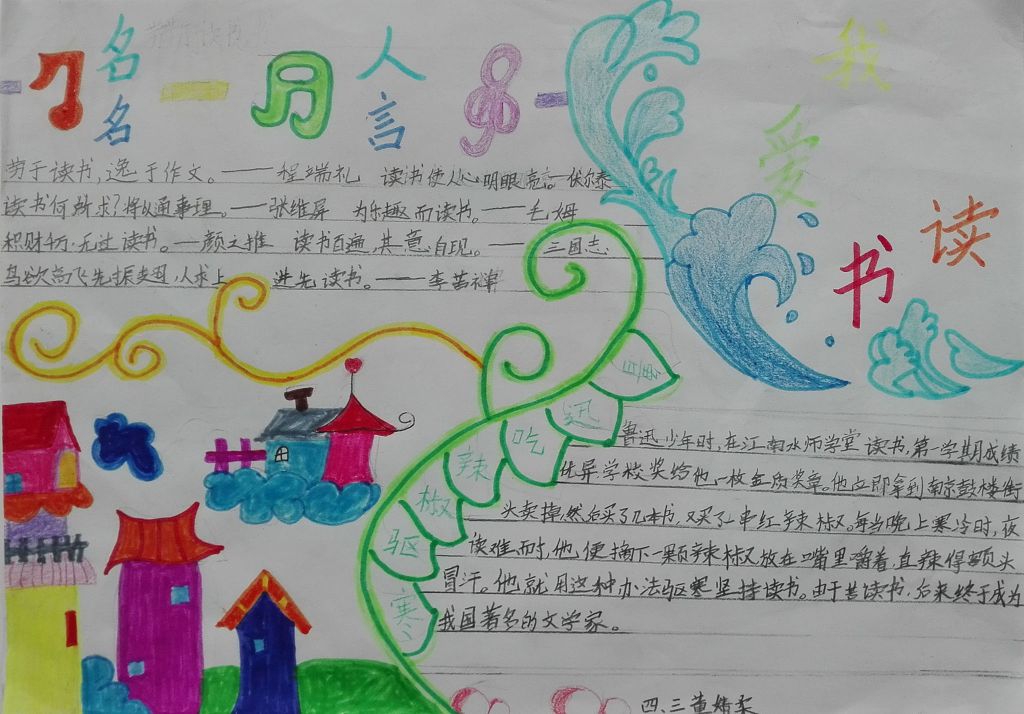 名人
名言
我爱读书
劳于读书,逸于作文。——程端礼 读书使人心明眼亮。伏尔泰
读书何所求?将以通事理。——张维屏 为乐趣而读书。——毛姆
积财千万·无过读书。—颜之推 读书百遍,其意自现。——三国志
鸟欲高飞先振翅,人求上进先读书。——李苦禅
鲁迅吃辣椒驱寒
鲁迅少年时,在江南水师学堂读书,第一学期成绩
优异.学校奖给他,一枚金质奖章。他立即拿到南京鼓楼街
头卖掉,然后买了几本书,又买了一串红辣椒。每当晚上寒冷时,夜
读难耐,他便摘下一颗辣椒放在嘴里嚼着,直辣得额头
冒汗。他就用这种办法驱寒坚持读书。由于苦读书,后来终于成为
我国著名的文学家。
四、三董婧柔